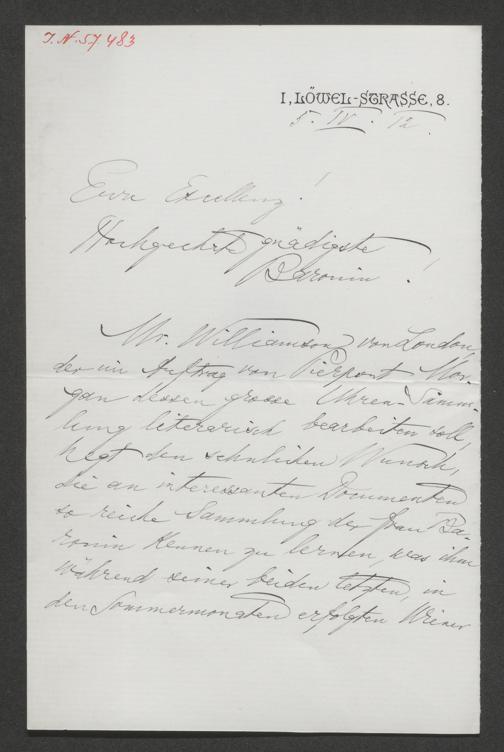 I. N. 57.483
I, LÖWEL-STRASSE, 8.
5. IV. 12.
Eure Excellenz!
Hochgeehrte gnädigste
Baronin!
Mr. Williamson von London,
der im Auftrag von Pierpont Mor-
gan dessen grosse Uhren-Samm-
lung literarisch bearbeiten soll,
hegt den sehnlichen Wunsch,
die an interessanten Documenten
so reiche Sammlung der Frau Ba-
ronin kennen zu lernen, was ihm
während seiner beiden letzten, in
den Sommermonaten erfolgten Wiener